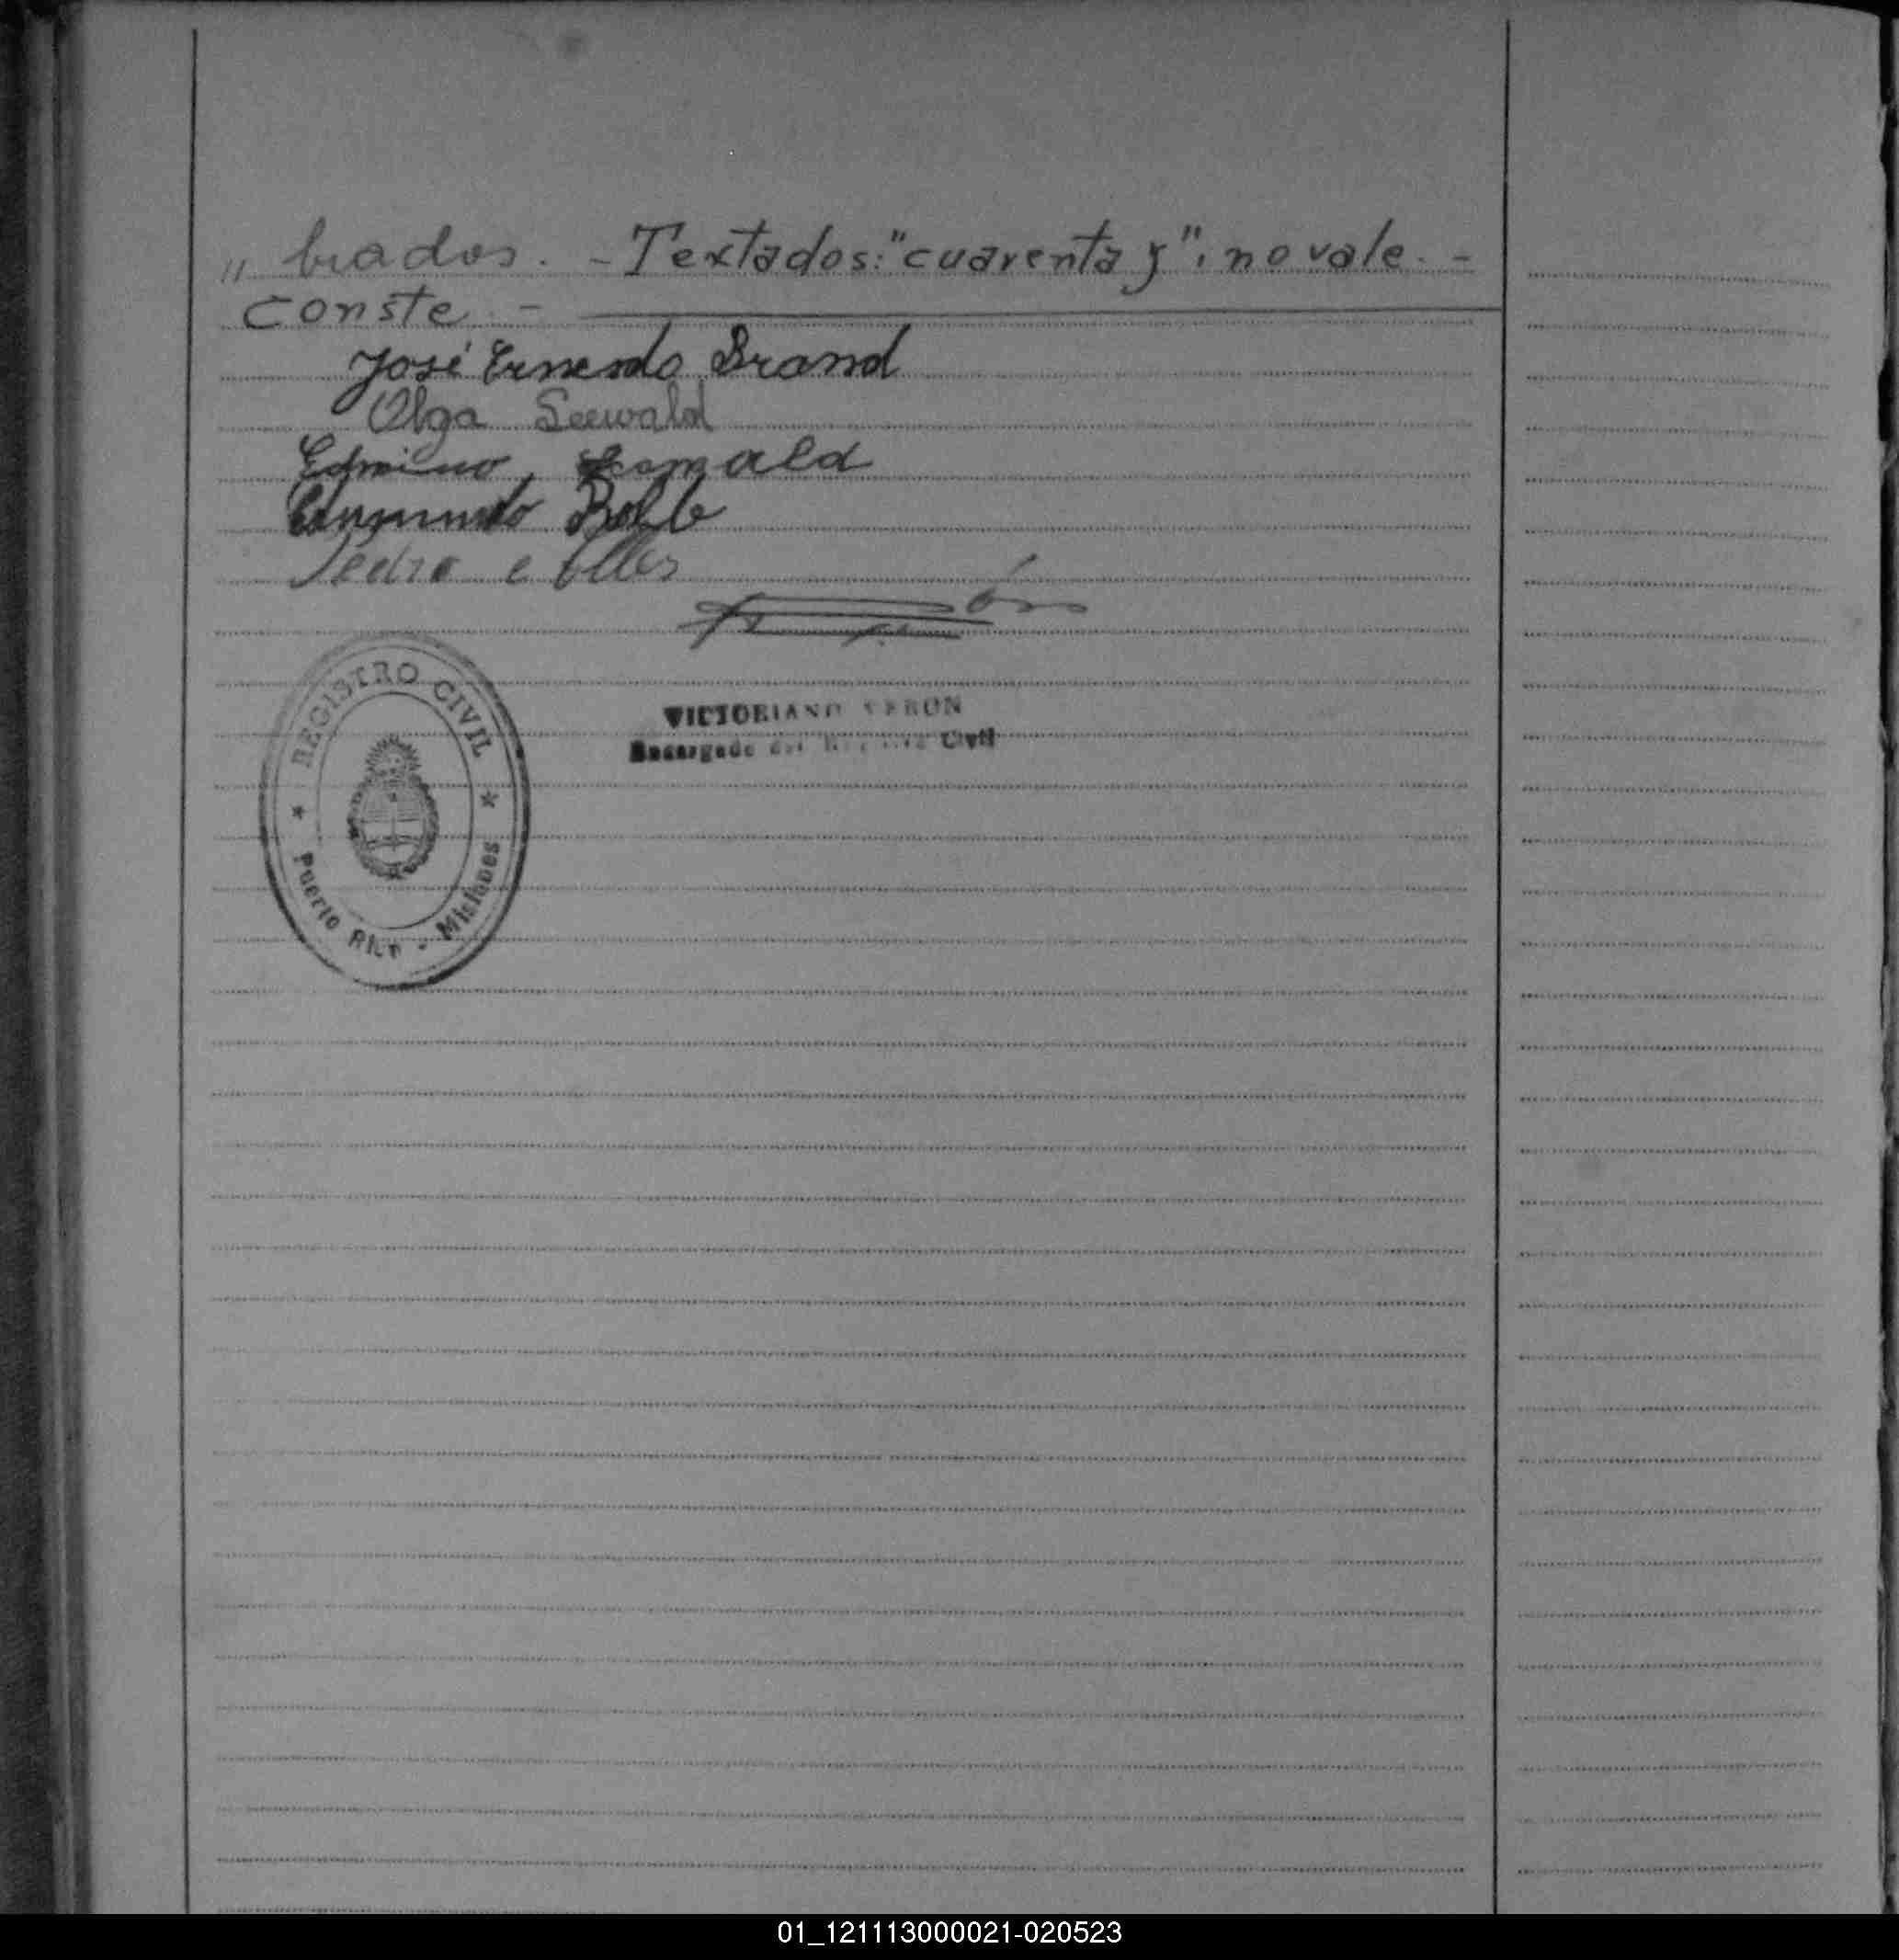 " brados. - Textados: "cuarenta y": no vale. -
conste. -
José Ernesto Brand
Olga Seewald
Edmundo
Pedro
REGISTRO CIVIL
Puerto Rico - Misiones
VICTORIANO VERON
Encargado del Registro Civil
01_121113000021-020523